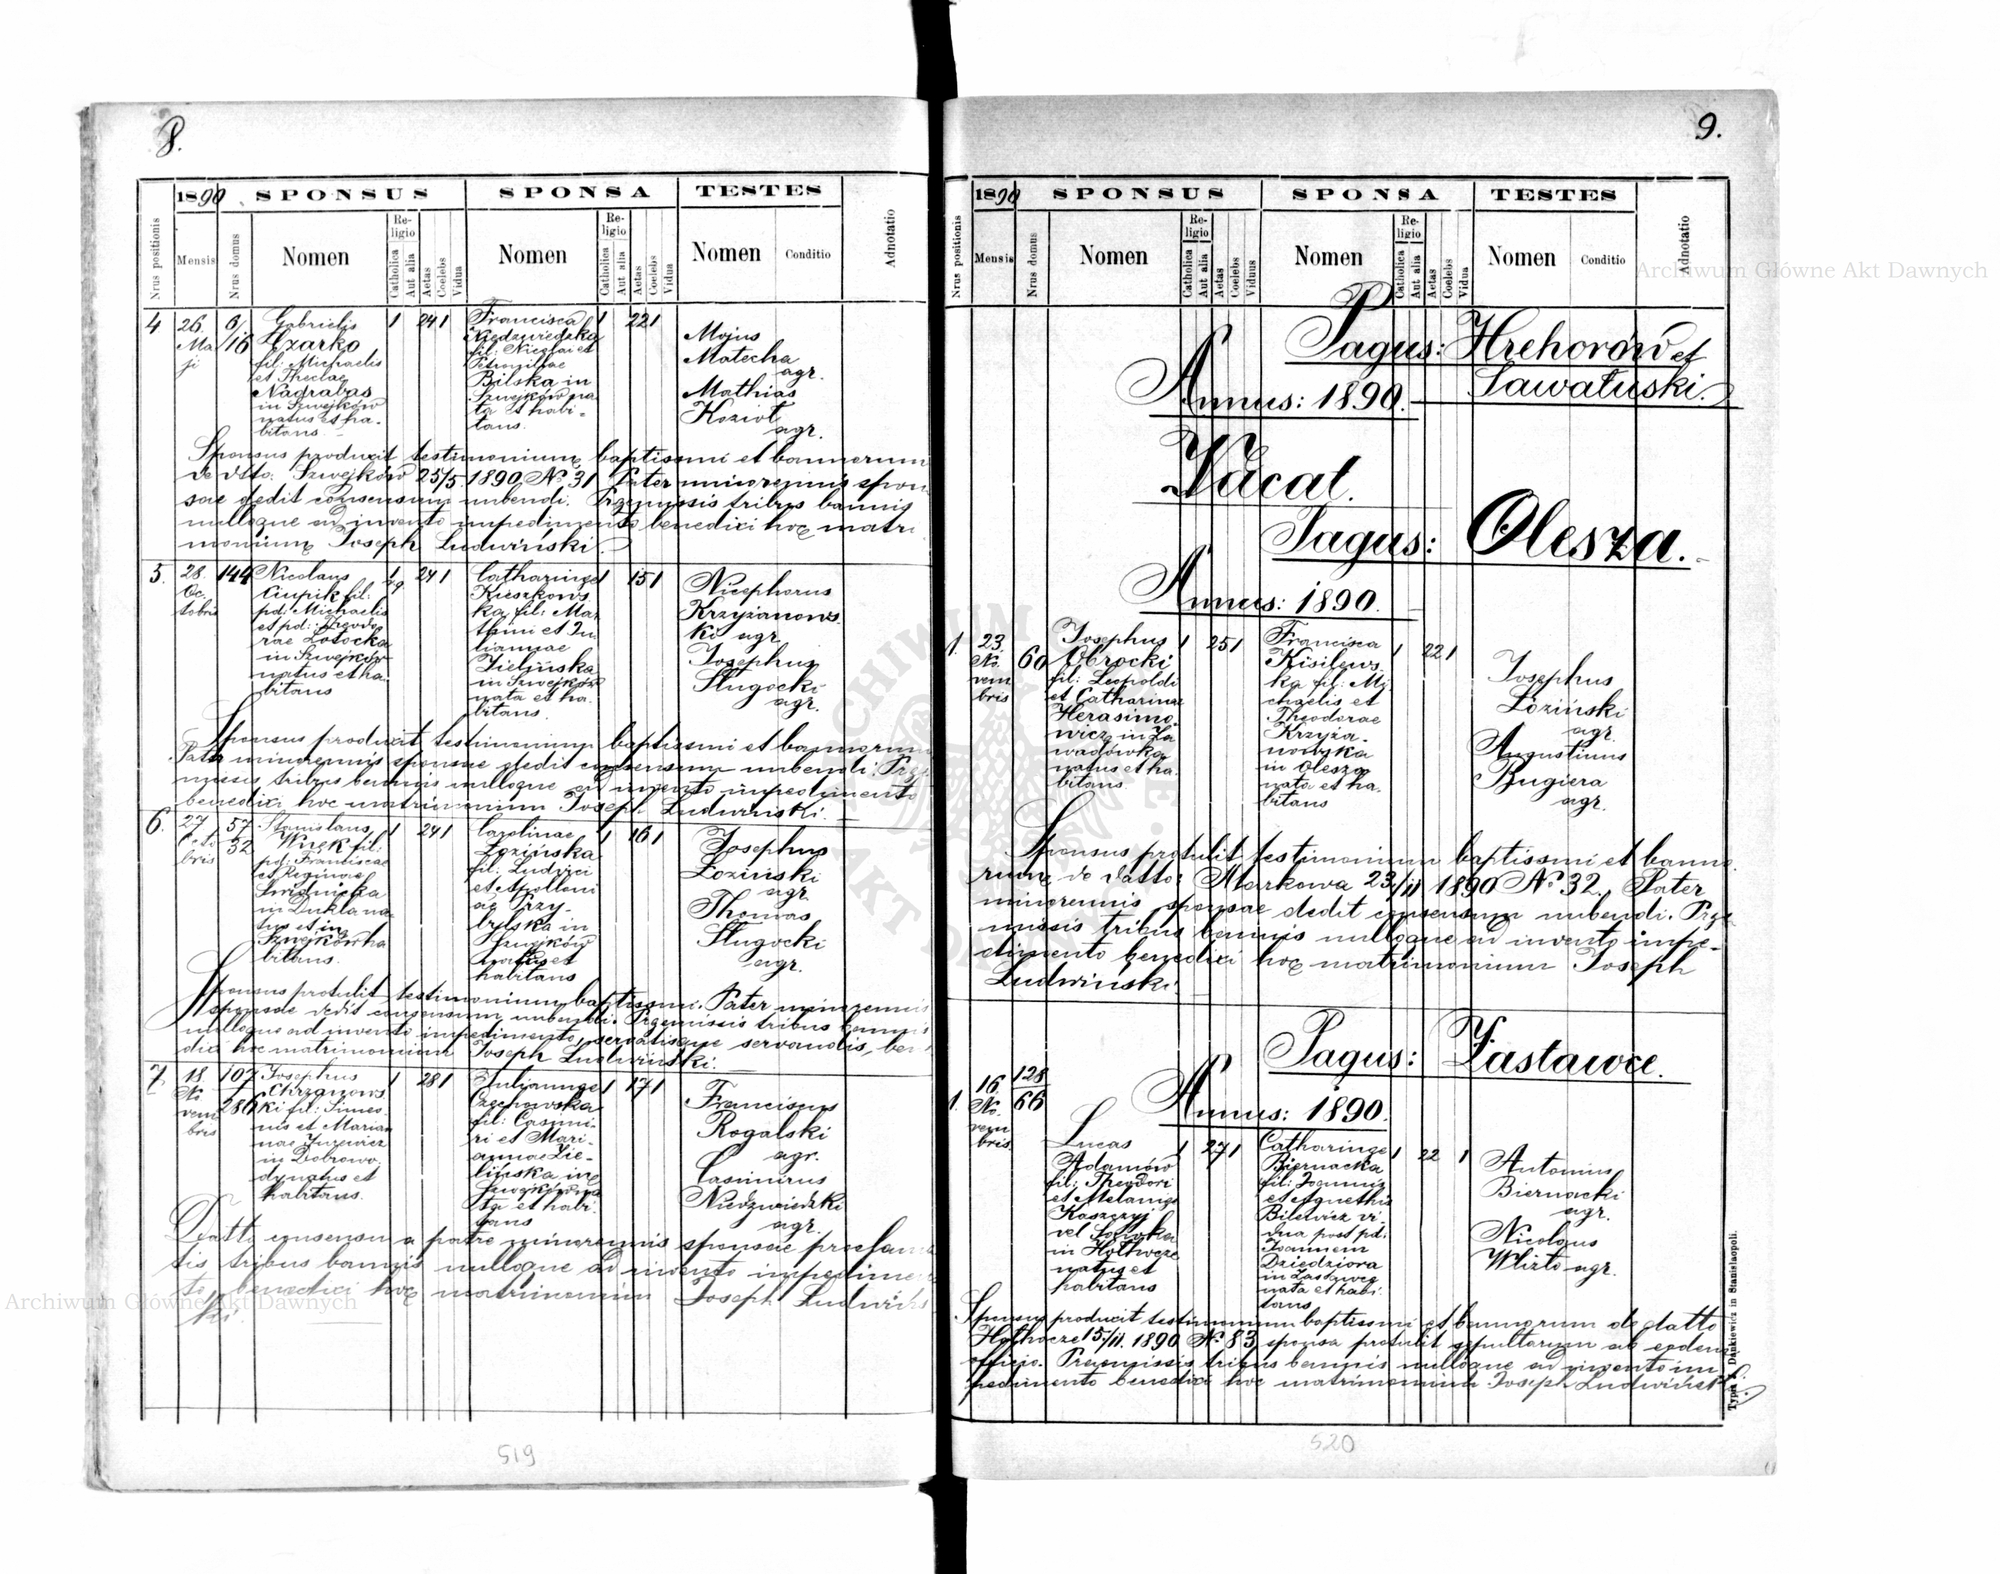 8.
1890 SPONSUS SPONSA TESTES
Nrus positionis
Mensis
Nrus domus
Nomen
Religio
Catholica
Aut alia
Aetas
Coelebs
Vidua
Nomen
Religio
Catholica
Aut alia
Aetas
Coelebs
Vidua
Nomen
Conditio
Adnotatio
4 26. Maji
6/16
Gabrielis
Czarko
fil: Michaelis
et Theclae
Nadrabas
in Szwejków
natus et ha-
bitans.
1 24 1
Francisca
fil: Nicolai et
Petronillae
Bilska in
Szwejków na
ta et habi-
tans.
1 22 1
Mojus
Matecha
agr.
Mathias
Kozioł
agr.
Sponsus produxit testimonium baptismi et bannorum
de dtto: Szwejków 25/5 1890 No. 31 Pater minorennis spon
sae dedit consensum nubendi. Praemissis tribus bannis
nulloque ad invento impedimento benedixi hoc matri
monium Joseph Ludwiński.
5. 28. Octobris
144
Nicolaus
Ciupik fil:
pd: Michaelis
et pd: Theodo
rae Łotocka
in Szwejków
natus et ha
bitans
24 1
Catharinae
Kieszkows
ka fil: Mar
thini et Ju
liannae
Zielińska
in Szwejków
nata et ha.
bitans.
1 15 1
Nicephorus
Krzyżanows
ki agr
Josephus
Sługocki
agr.
Sponsus produxit testimonium baptismi et bannorum
Pater minorennis sponsae dedit consensum nubendi. Prae
missis tribus bannis nulloque ad invento impedimento
benedixi hoc matrimonium Joseph Ludwiński.
6. 27 Octobris
57 32
Stanislaus
Wnęk fil:
pd: Franciscae
et Reginae
in Dukla na
tus et in
Szwejków ha
bitans.
1 24 1
Carolinae
Łozińska
fil: Ludvici
et Apolloni
ae Przy-
bylska in
Szwejków
nata et
habitans
1 16 1
Josephus
Łoziński
agr
Thomas
Sługocki
agr.
Sponsus protulit testimonium baptismi. Pater minorennis
sponsae dedit consensum nubendi. Praemissis tribus bannis
nulloque ad invento impedimento, servatisque servandis, ben
dixi hoc matrimonium Joseph Ludwiński.
7. 18. Novembris
107 286
Josephus
Chrzanows
ki fil: Simeo
nis et Marian
nae Jurewicz
in Dobrowo
dy natus et
habitans.
1 28 1
Juliannae
Czechowska
fil: Casimi-
ri et Mari-
annae Zie-
lińska in
Szwejków na
ta et habi
tans
1 17 1
Franciscus
Rogalski
agr.
Casimirus
Niedzwiedzki
agr.
Datto consensu a patre minorennis sponsae proclama
tis tribus bannis nulloque ad invento impedimen
to benedixi hoc matrimonium Joseph Ludwińs
ki.
519
9.
1890 SPONSUS SPONSA TESTES
Nrus positionis
Mensis
Nrus domus
Nomen
Religio
Catholica
Aut alia
Aetas
Coelebs
Viduus
Nomen
Religio
Catholica
Aut alia
Aetas
Coelebs
Vidua
Nomen
Conditio
Adnotatio
Pagus: Hrehorów et
Sawałuski.
Annus: 1890.
Vacat.
Pagus: Olesza.
Annus: 1890.
1. 23. Novembris
60
Josephus
Obrocki
fil: Leopoldi
et Catharinae
Herasimo
wicz in Za
wadówka
natus et ha
bitans.
1 25 1
Francisca
Kisilews
ka fil: Mi
chaelis et
Theodorae
Krzyża-
nowska
in Olesza
nata et ha
bitans
1 22 1
Josephus
Łoziński
agr.
Augustinus
Bugiera
agr.
Sponsus protulit testimonium baptismi et banno
rum de datto: Markowa 23/11 1890 No 32. Pater
minorennis sponsae dedit consensum nubendi. Prae
missis tribus bannis nulloque ad invento impe-
dimento benedixi hoc matrimonium Joseph
Ludwiński.
Pagus: Zastawce.
Annus: 1890.
1. 16. Novembris
128 66
Lucas
Adamów
fil: Theodori
et Melaniae
Koszczyj
vel Sowka
in Hołhocze
natus et
habitans
1 27 1
Catharinae
Biernacka
fil: Joannis
et Agnethis
Bilewicz vi-
dua post pd:
Joannem
Dziedziora
in Zastawce
nata et habi
tans
1 22 1
Antonius
Biernacki
agr.
Nicolaus
Wlizło agr.
Sponsus produxit testimonium baptismi et bannorum de datto
Hołhocze 15/11. 1890 No. 83 sponsa protulit sepulturam ab eodem
officio. Praemissis tribus bannis nulloque ad invento im
pedimento benedixi hoc matrimonium Joseph Ludwiński.
Typis J. Dankiewicz in Stanislaopoli.
520
Archiwum Główne Akt Dawnych
Archiwum Główne Akt Dawnych
ARCHIWUM GŁÓWNE AKT DAWNYCH